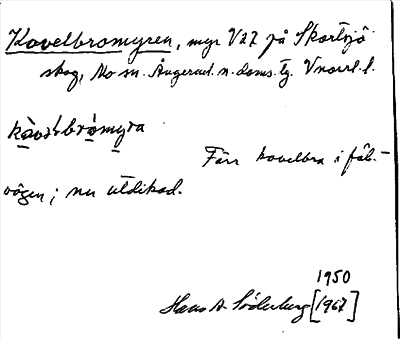 Kovelbromyren, myr V27 på Skortsjö
skog, No sn. Ångerml. n. doms. tg. Vnorrl. l.
kòvəlbròmyra
Förr kovelbro i fäb.-
vägen; nu utdikad.
1950
Hans A. Söderberg [1967]